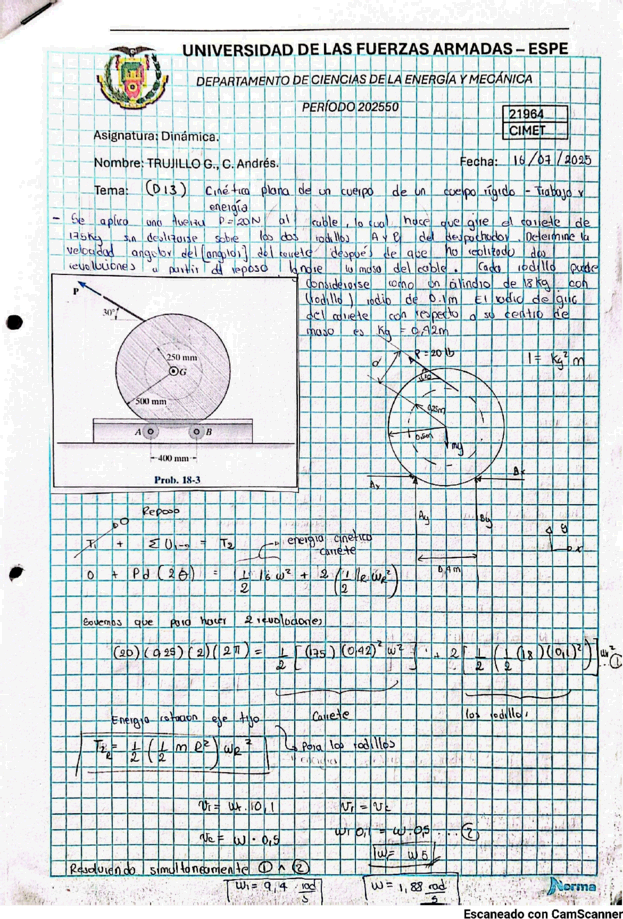 UNIVERSIDAD DE LAS FUERZAS ARMADAS – ESPE
DEPARTAMENTO DE CIENCIAS DE LA ENERGÍA Y MECÁNICA
PERÍODO 202550
21964
CIMET
Asignatura: Dinámica.
Nombre: TRUJILLO G., C. Andrés.
Fecha: 16/07/2025
Tema: (D13) Cinética plana de un cuerpo de un cuerpo rígido - Trabajo y
energía
- Se aplica una fuerza P=20N al cable, lo cual hace que gire el carrete de
175kg sin deslizarse sobre los dos rodillos A y B del despachador. Determine la
velocidad angular del [angular] del carrete después de que ha realizado dos
revoluciones a partir del reposo. Ignore la masa del cable. Cada rodillo puede
considerarse como un cilindro de 18kg con
(rodillo) radio de 0.1m El radio de giro
del carrete con respecto a su centro de
masa es Kg = 0,42m
P
30°
250 mm
G
500 mm
A
B
400 mm
Prob. 18-3
P = 20 lb
d
0.25m
0.5m
mg
I = kg² m
Ax
Bx
Ay
By
0,4m
y
x
Reposo
0
T1 + ΣU1-2 = T2
energía cinética
carrete
0 + Pd(2θ) = 1/2 IG ω² + 2 (1/2 IR ωR²)
Sabemos que para hacer 2 revoluciones
(20)(0,25)(2)(2π) = 1/2 [(175)(0,42)² ω²] + 2 [1/2 (1/2 (18)(0,1)²)] ωr² ... ①
Energía rotación eje fijo
Carrete
los rodillos
T2R = 1/2 (1/2 m R²) ωR²
para los rodillos
vr = ωr · 0,1
vr = vc
vc = ω · 0,5
ωr 0,1 = ω·0,5 ... ②
ω = ω5
Resolviendo simultáneamente ① ∧ ②
ω1 = 9,4 rad/s
ω = 1,88 rad/s
Norma
Escaneado con CamScanner